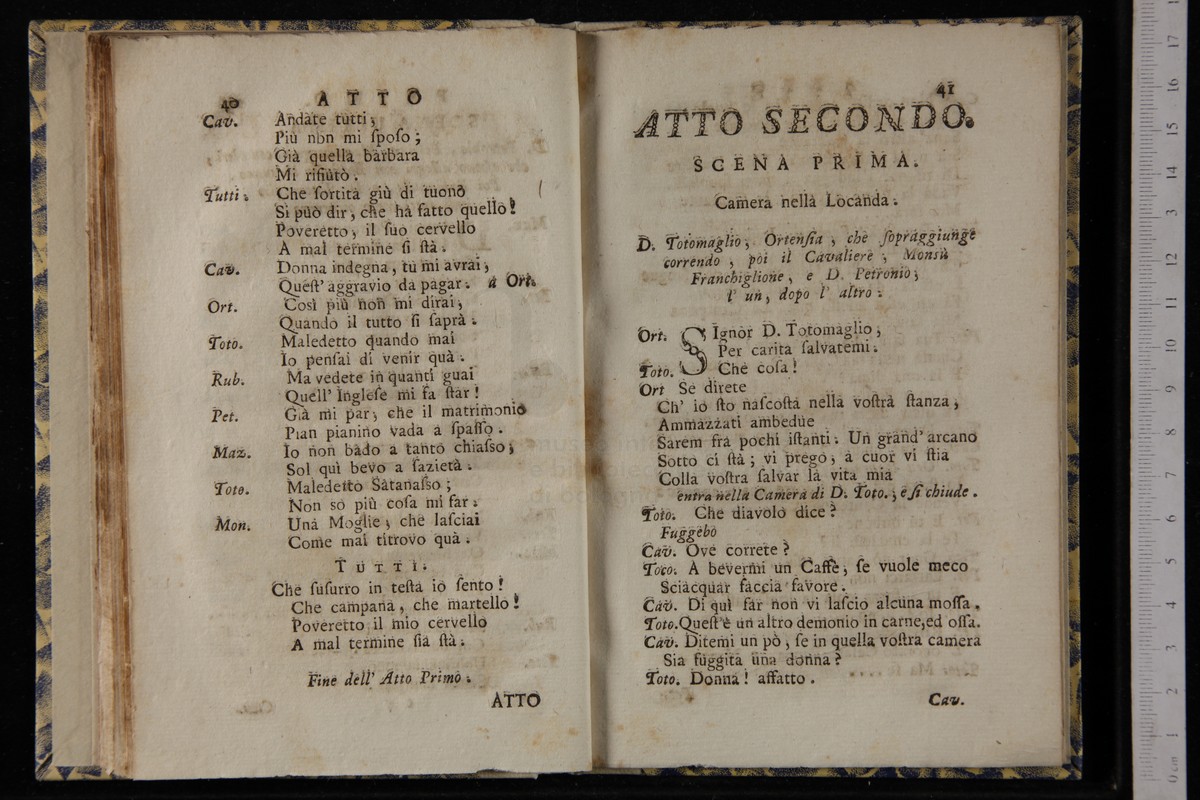 40 ATTO
Cav. Andate tutti,
Più non mi ſpoſo;
Già quella barbara
Mi rifiutò.
Tutti. Che ſortita giù di tuono
Si può dir, che ha fatto quello!
Poveretto, il ſuo cervello
A mal termine ſi ſtà.
Cav. Donna indegna, tu mi avrai,
Queſt' aggravio da pagar. a Ort.
Ort. Così più non mi dirai,
Quando il tutto ſi ſaprà.
Toto. Maledetto quando mai
Io penſai di venir quà.
Rub. Ma vedete in quanti guai
Quell' Ingleſe mi fa ſtar!
Pet. Già mi par, che il matrimonio
Pian pianino vada a ſpaſſo.
Maz. Io non bado a tanto chiaſſo,
Sol quì bevo a ſazietà.
Toto. Maledetto Satanaſſo;
Non so più coſa mi far.
Mon. Una Moglie, che laſciai
Come mai titrovo quà.
TUTTI.
Che ſuſurro in teſta io ſento!
Che campana, che martello!
Poveretto il mio cervello
A mal termine ſia ſtà.
Fine dell' Atto Primo.
ATTO
41
ATTO SECONDO.
SCENA PRIMA.
Camera nella Locanda.
D. Totomaglio, Ortenſia, che ſopraggiunge
correndo, poi il Cavaliere, Monsù
Franchiglione, e D. Petronio,
l' un, dopo l' altro.
Ort. SIgnor D. Totomaglio,
Per carità ſalvatemi.
Toto. Che coſa!
Ort Se direte
Ch' io ſto naſcoſta nella voſtra ſtanza,
Ammazzati ambedue
Sarem frà pochi iſtanti. Un grand' arcano
Sotto ci ſtà; vi prego, a cuor vi ſtia
Colla voſtra ſalvar la vita mia
entra nella Camera di D. Toto., e ſi chiude.
Toto. Che diavolo dice?
Fuggebo
Cav. Ove correte?
Toco. A bevermi un Caffè, ſe vuole meco
Sciacquar faccia favore.
Cav. Di quì far non vi laſcio alcuna moſſa.
Toto. Queſt'è un altro demonio in carne, ed oſſa.
Cav. Ditemi un pò, ſe in quella voſtra camera
Sia fuggita una donna?
Toto. Donna! affatto.
Cav.